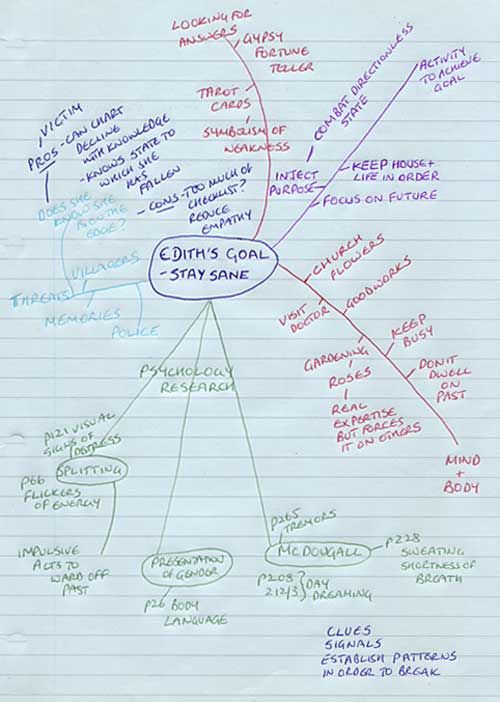 LOOKING FOR
ANSWERS
GYPSY
FORTUNE
TELLER
TAROT
CARDS
SYMBOLISM OF
WEAKNESS
COMBAT DIRECTIONLESS
STATE
ACTIVITY
TO ACHIEVE
GOAL
INJECT
PURPOSE
KEEP HOUSE +
LIFE IN ORDER
FOCUS ON FUTURE
VICTIM
PROS - CAN CHART
DECLINE
WITH KNOWLEDGE
- KNOWS STATE TO
WHICH SHE
HAS
FALLEN
- CONS - TOO MUCH OF
CHECKLIST?
REDUCE
EMPATHY
DOES SHE
KNOW SHE
IS ON THE
EDGE?
VILLAGERS
THREATS
MEMORIES
POLICE
EDITH'S GOAL
- STAY SANE
CHURCH
FLOWERS
VISIT
DOCTOR
GOODWORKS
GARDENING
ROSES
REAL
EXPERTISE
BUT FORCES
IT ON OTHERS
KEEP
BUSY
DON'T
DWELL
ON
PAST
MIND
+
BODY
PSYCHOLOGY
RESEARCH
P121 VISUAL
SIGNS OF
DISTRESS
SPLITTING
P66
FLICKERS
OF ENERGY
IMPULSIVE
ACTS TO
WARD OFF
PAST
PRESENTATION
OF GENDER
P26 BODY
LANGUAGE
P265
TREMORS
MCDOUGALL
P228
SWEATING
SHORTNESS OF
BREATH
P208
212/3 } DAY
DREAMING
CLUES
SIGNALS
ESTABLISH PATTERNS
IN ORDER TO BREAK